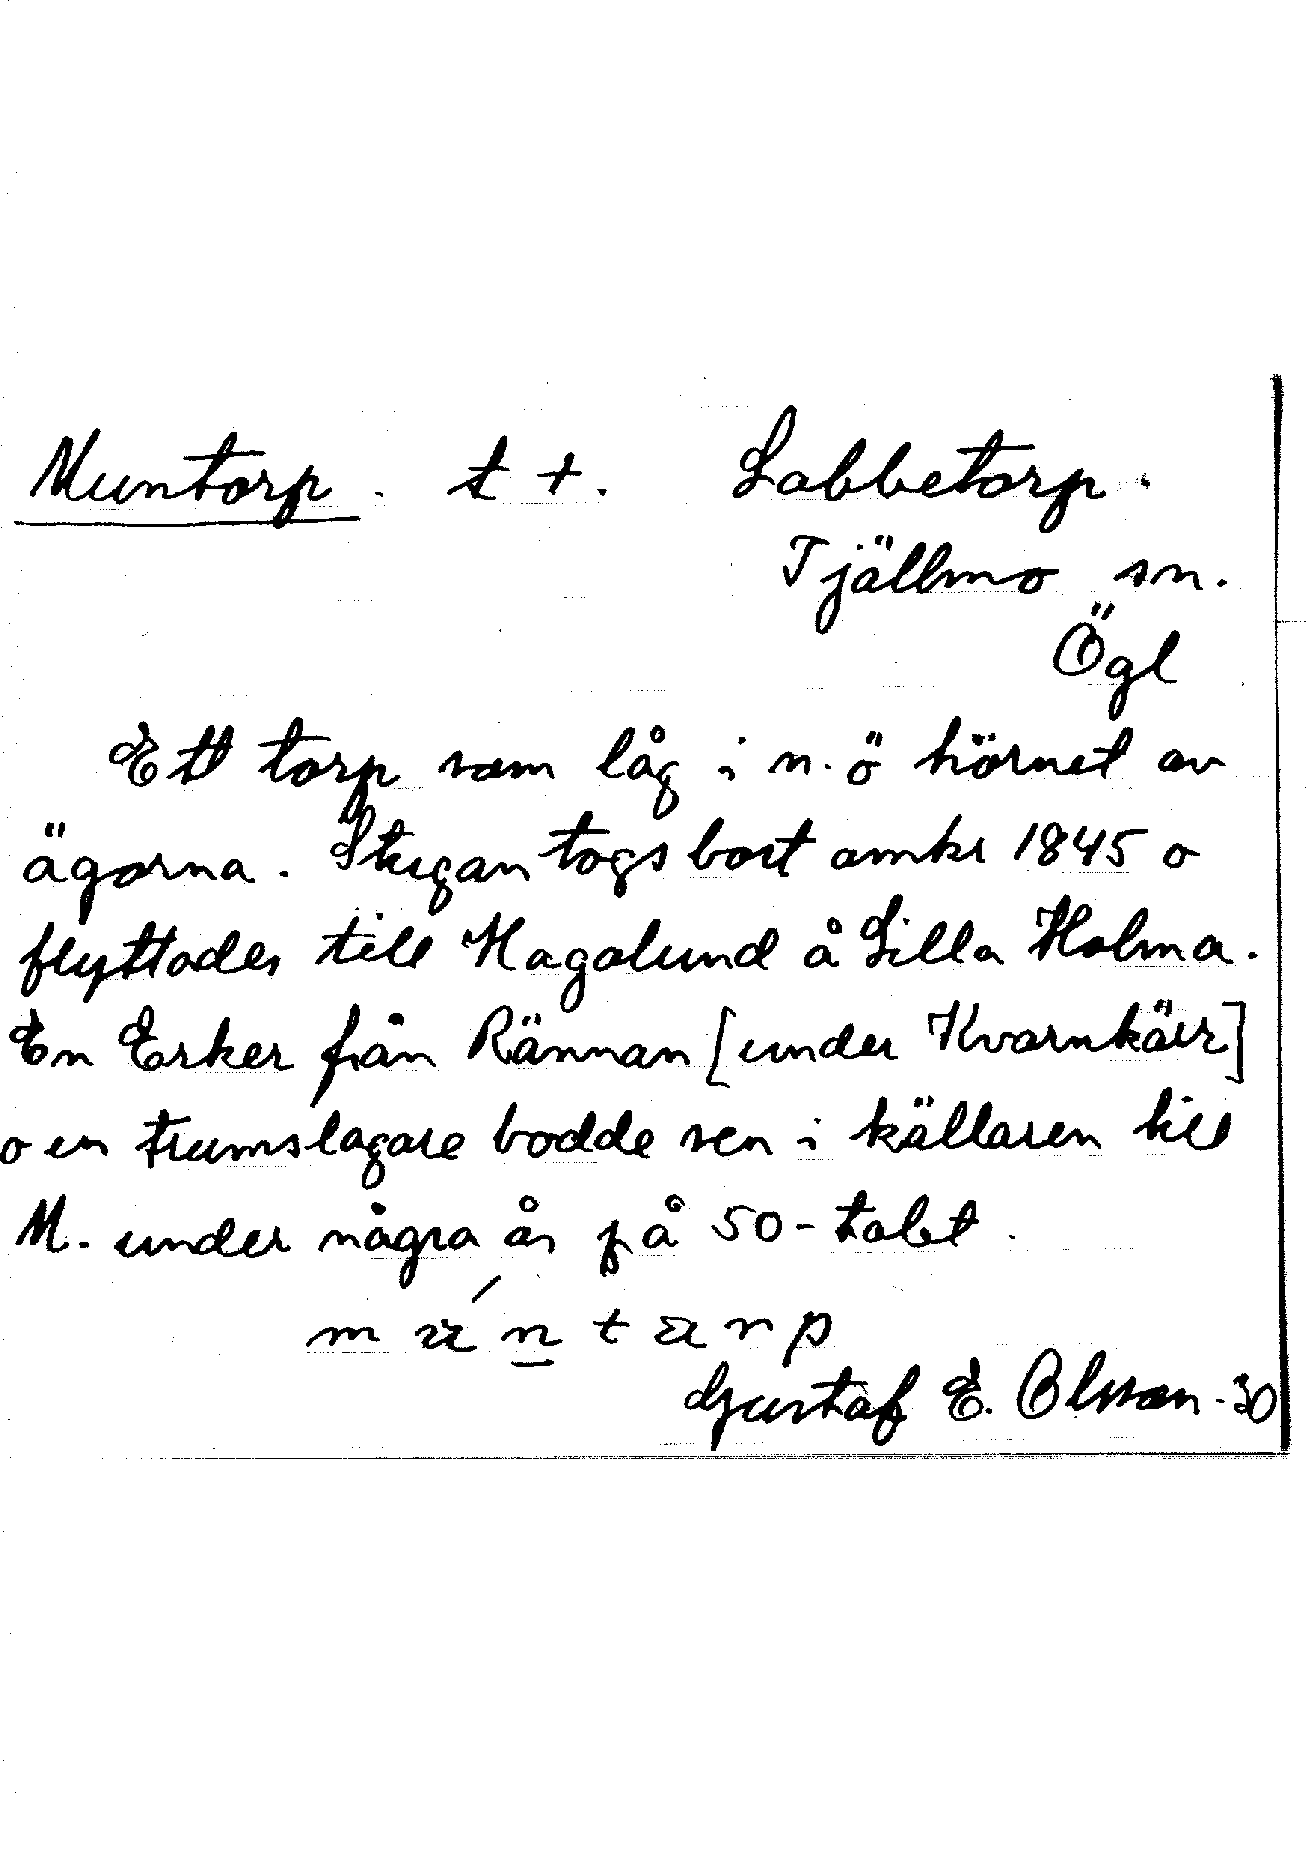 Muntorp. t +. Labbetorp.
Tjällmo sn.
Ögl
Ett torp som låg i n. ö hörnet av
ägorna. Stugan togs bort omkr 1845 o
flyttades till Hagalund å Lilla Holma.
En Erker från Rännan [under Kvarnkärr]
o en trumslagare bodde sen i källaren till
M. under några år på 50-talet.
Gustaf E. Olsson -30